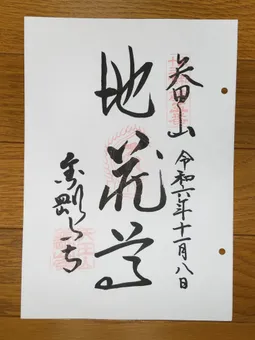 矢田山 令和六年十一月八日
地蔵尊
金剛山寺